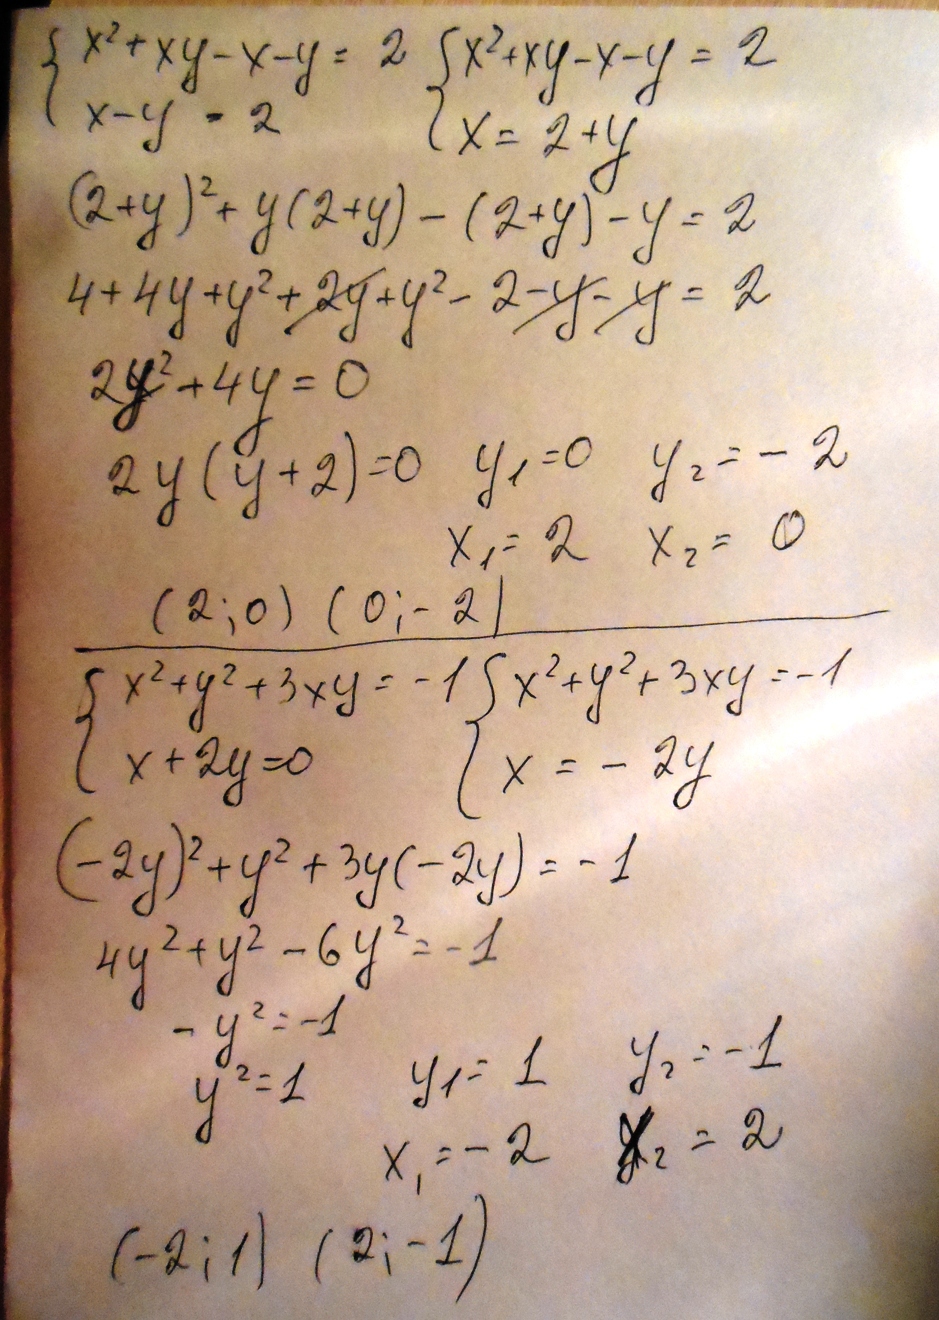 { x² + xy - x - y = 2 { x² + xy - x - y = 2
x - y = 2 x = 2 + y
(2+y)² + y(2+y) - (2+y) - y = 2
4 + 4y + y² + 2y + y² - 2 - y - y = 2
2y² + 4y = 0
2y(y+2) = 0 y₁ = 0 y₂ = -2
x₁ = 2 x₂ = 0
(2;0) (0;-2)
{ x² + y² + 3xy = -1 { x² + y² + 3xy = -1
x + 2y = 0 x = -2y
(-2y)² + y² + 3y(-2y) = -1
4y² + y² - 6y² = -1
-y² = -1
y² = 1 y₁ = 1 y₂ = -1
x₁ = -2 x₂ = 2
(-2;1) (2;-1)